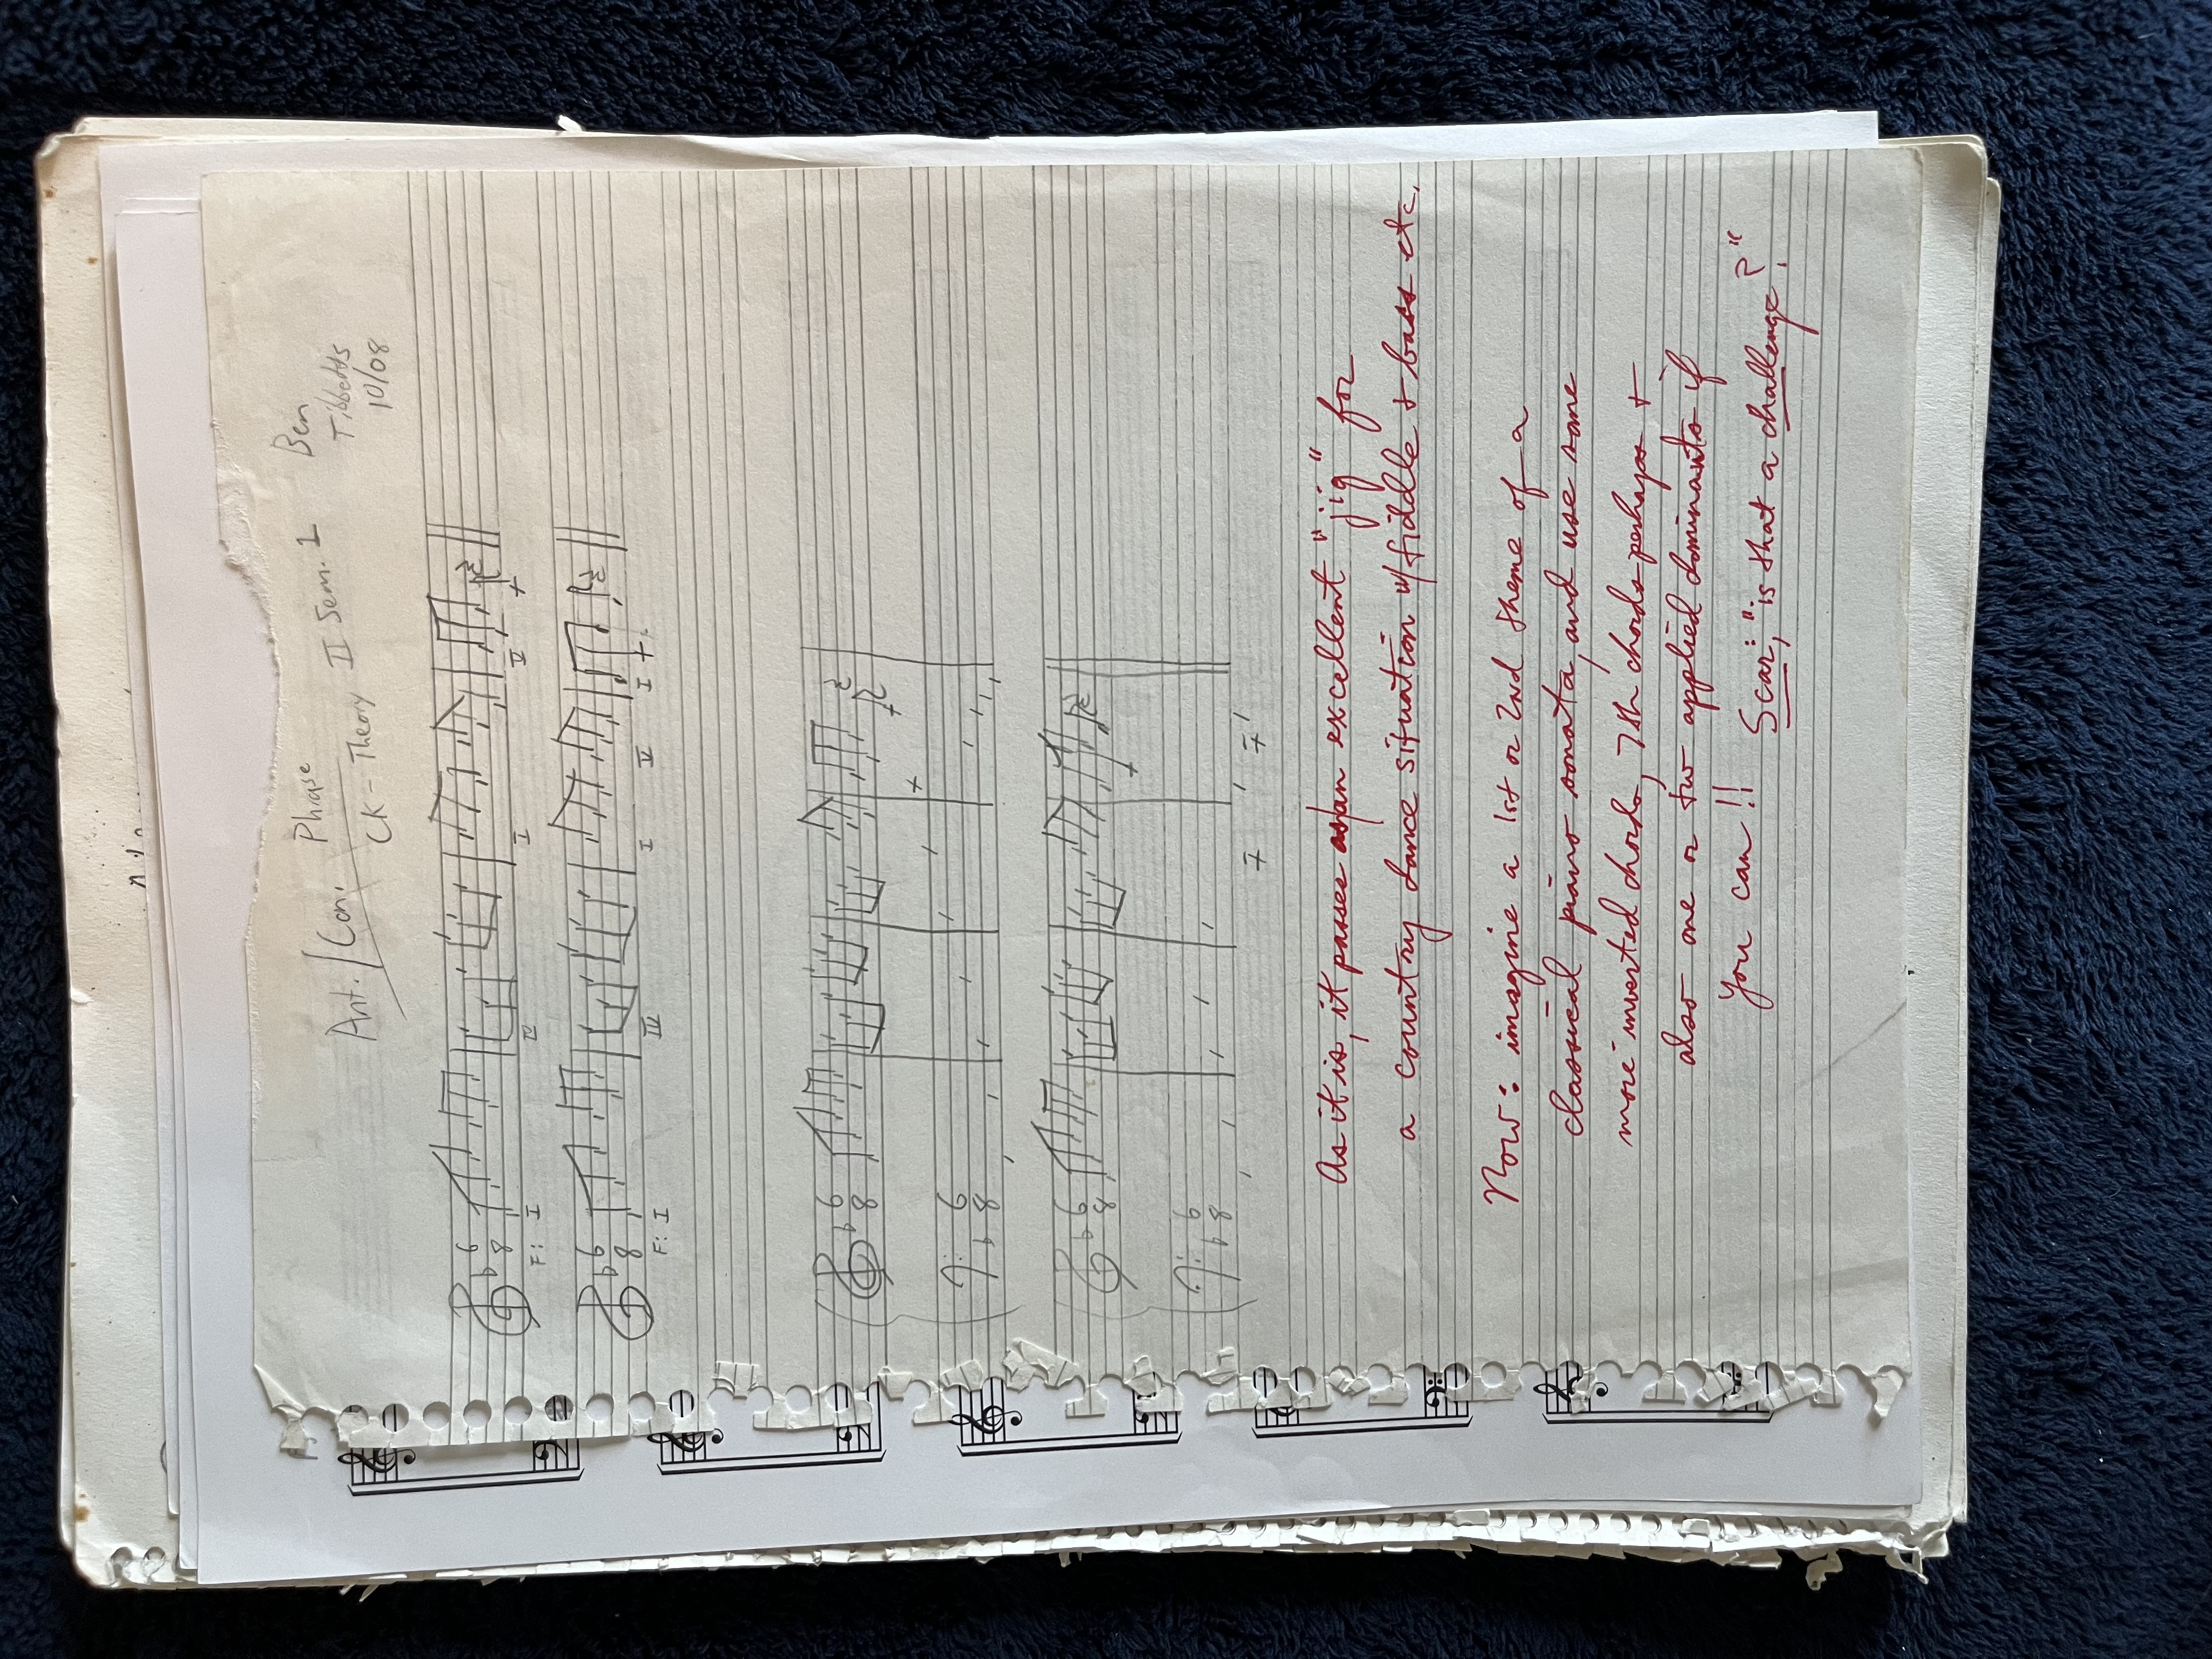 Ant. / Con. Phrase
CK - Theory II Sem. 1
Ben
Tibbetts
10/08
6
8
F: I IV I V
6
8
F: I III I V I
6
8
6
8
6
8
6
8
As it is, it passes as an excellent "jig" for
a country dance situation w/ fiddle + bass etc.
Now: imagine a 1st or 2nd theme of a
classical piano sonata, and use some
more inverted chords, 7th chords perhaps +
also one or two applied dominants if
you can!!
Scar: "is that a challenge?"